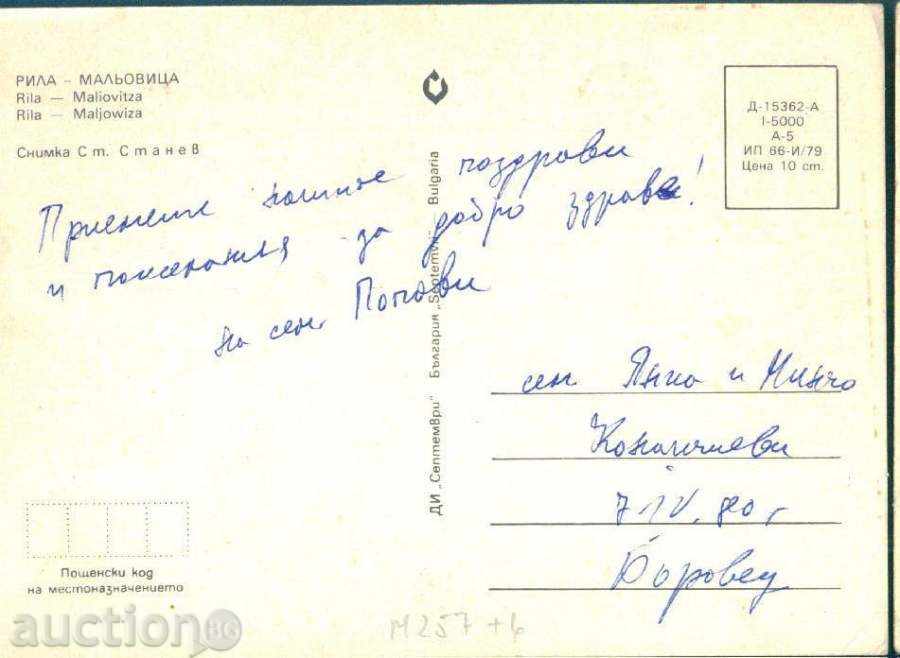 РИЛА – МАЛЬОВИЦА
Rila — Maliovitza
Rila — Maljowiza
Снимка Ст. Станев
Приемете нашите поздрави
и пожелания за добро здраве!
на сем. Попови
ДИ „Септември" България „Septemvri" Bulgaria
Д-15362-А
I-5000
А-5
ИП 66-И/79
Цена 10 ст.
сем Янка и Минчо
7 IV. 80 г
Боровец
Пощенски код
на местоназначението
М257+6
auction BG